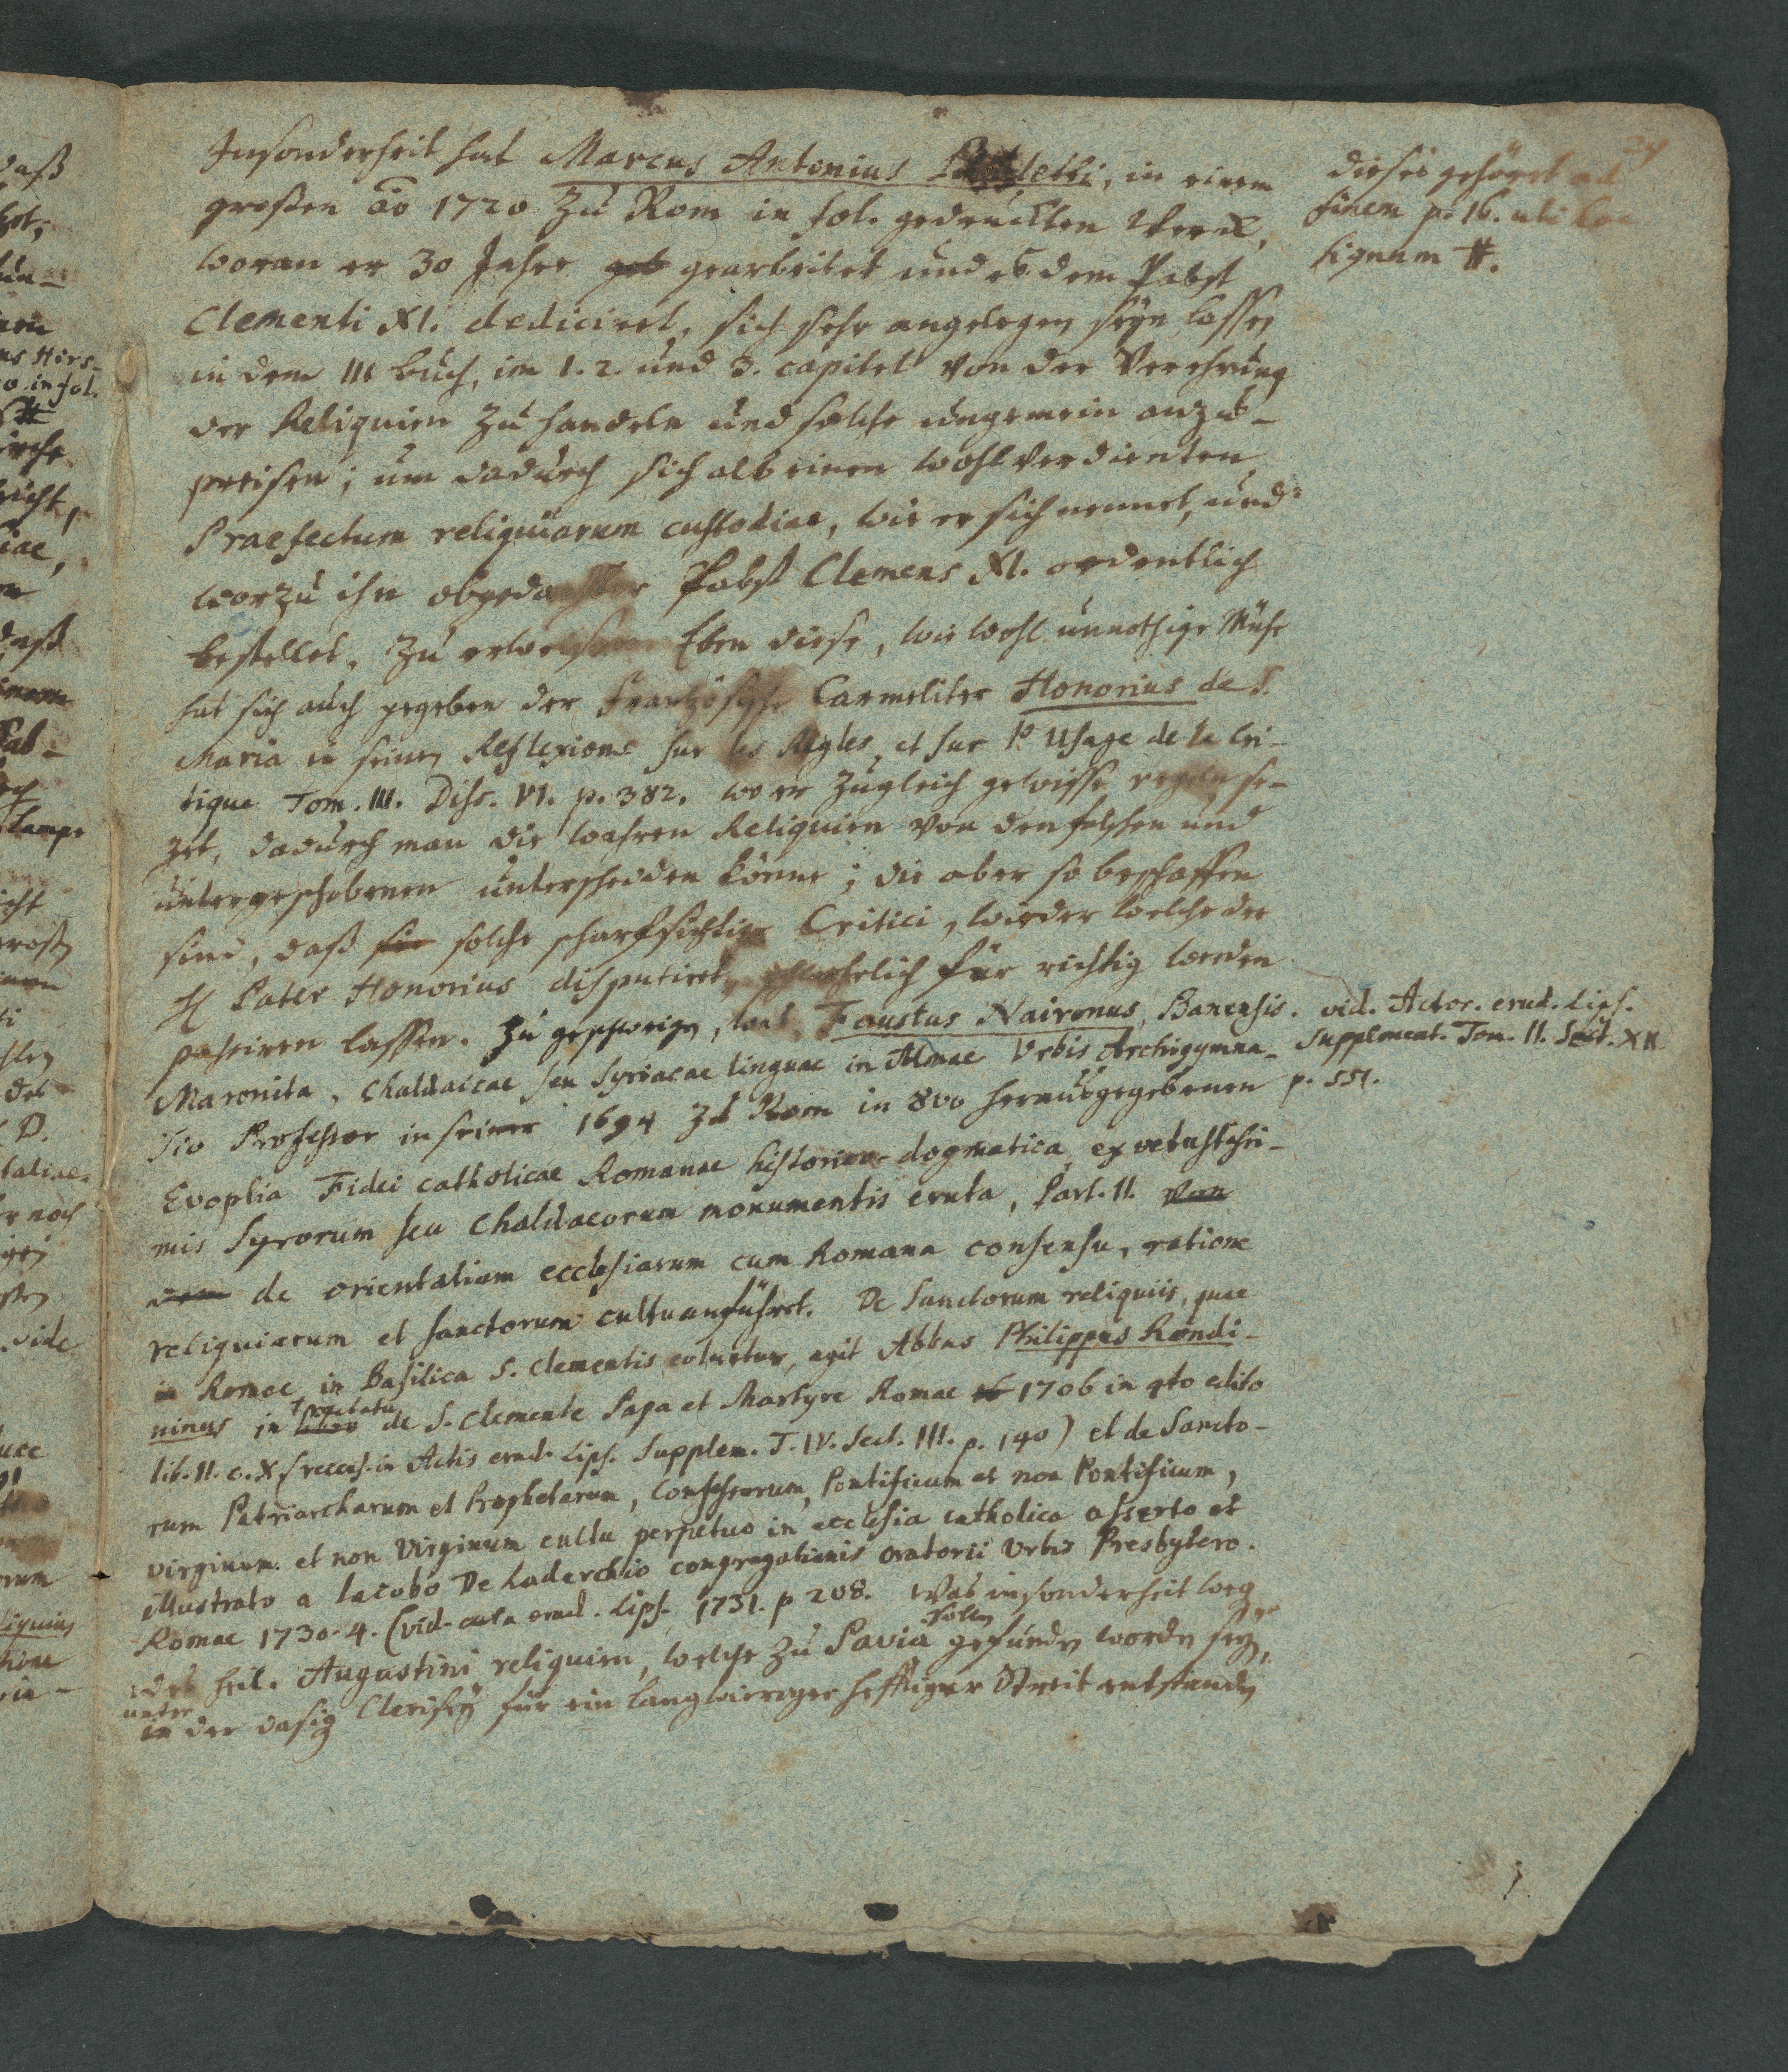 Insonderheit hat Marcus Antonius letti, in einem
großen ao 1720 zu Rom in fol. gedruckten Werck,
woran er 30 Jahre geb gearbeitet und es dem Pabst
Clementi XI. dediciret, sich sehr angelegen seyn lassen
in dem III buch, im 1. 2. und 3. capitel von der Verehrung
der Reliquien zu handeln und solche ungemein anzu-
preisen; um dadurch sich als einen wohlverdienten
Praefectum reliquiarum custodiae, wie er sich nennet, und
worzu ihn obgedachter Pabst Clemens XI. ordentlich
bestellet, zu erweisen. Eben diese, wie wohl unnöthige Mühe
hat sich auch gegeben der Französische Carmeliter Honorius de S.
Maria in seinen Reflexions sur les Regles et sur l'Usage de la Cri-
tique Tom. III. Diss. VI. p. 382. wo er zugleich gewisse regeln se-
zet, dadurch man die wahren Reliquien von den falschen und
untergeschobenen unterscheiden könne; die aber so beschaffen
sind, daß sie solche scharfsichtige Critici, wieder welche der
H Pater Honorius disputiret, schwehrlich für richtig werden
passiren lassen. Zu geschweigen, was Faustus Naironus, Banensis.
Maronita, Chaldaicae seu Syriacae linguae in Almae Urbis Archigymna-
sio Professor in seiner 1694 zu Rom in 8vo herausgegebenen
Evoplia Fidei catholicae Romanae historico-dogmatica ex vetustissi-
mis Syrorum seu Chaldaeorum monumentis eruta, Part. II. von
dem de orientalium ecclesiarum cum Romana consensu, ratione
reliquiarum et sanctorum cultu anführet. De Sanctorum reliquiis, quae
in Romae in Basilica S. Clementis coluntur, agit Abbas Philippus Rondi-
ninus in libro tractatu de S. Clemente Papa et Martyre Romae 1706 in 4to edito
lib. II. c. X (recens. in Actis erud. Lips. Supplem. T. IV. Sect. III. p. 140) et de Sancto-
rum Patriarcharum et Prophetarum, Confessorum, Pontificum et non Pontificum,
virginum et non Virginum cultu perpetuo in ecclesia catholica asserto et
illustrato a Iacobo De Laderchio congregationis oratorii Urbis Presbytero.
Romae 1730. 4. (vid. acta erud. Lips. 1731. p 208. Was insonderheit weg
des heil. Augustini reliquien, welche zu Pavia sollen gefunden worden seyn,
in unter der dasig Clerisey für ein langwieriger hefftiger Streit entstanden
dieses gehöret ad
finem p. 16. ubi hoc
signum #.
vid. Actor. erud. Lips.
Supplement. Tom. II. Sect. XII.
p. 551.
24